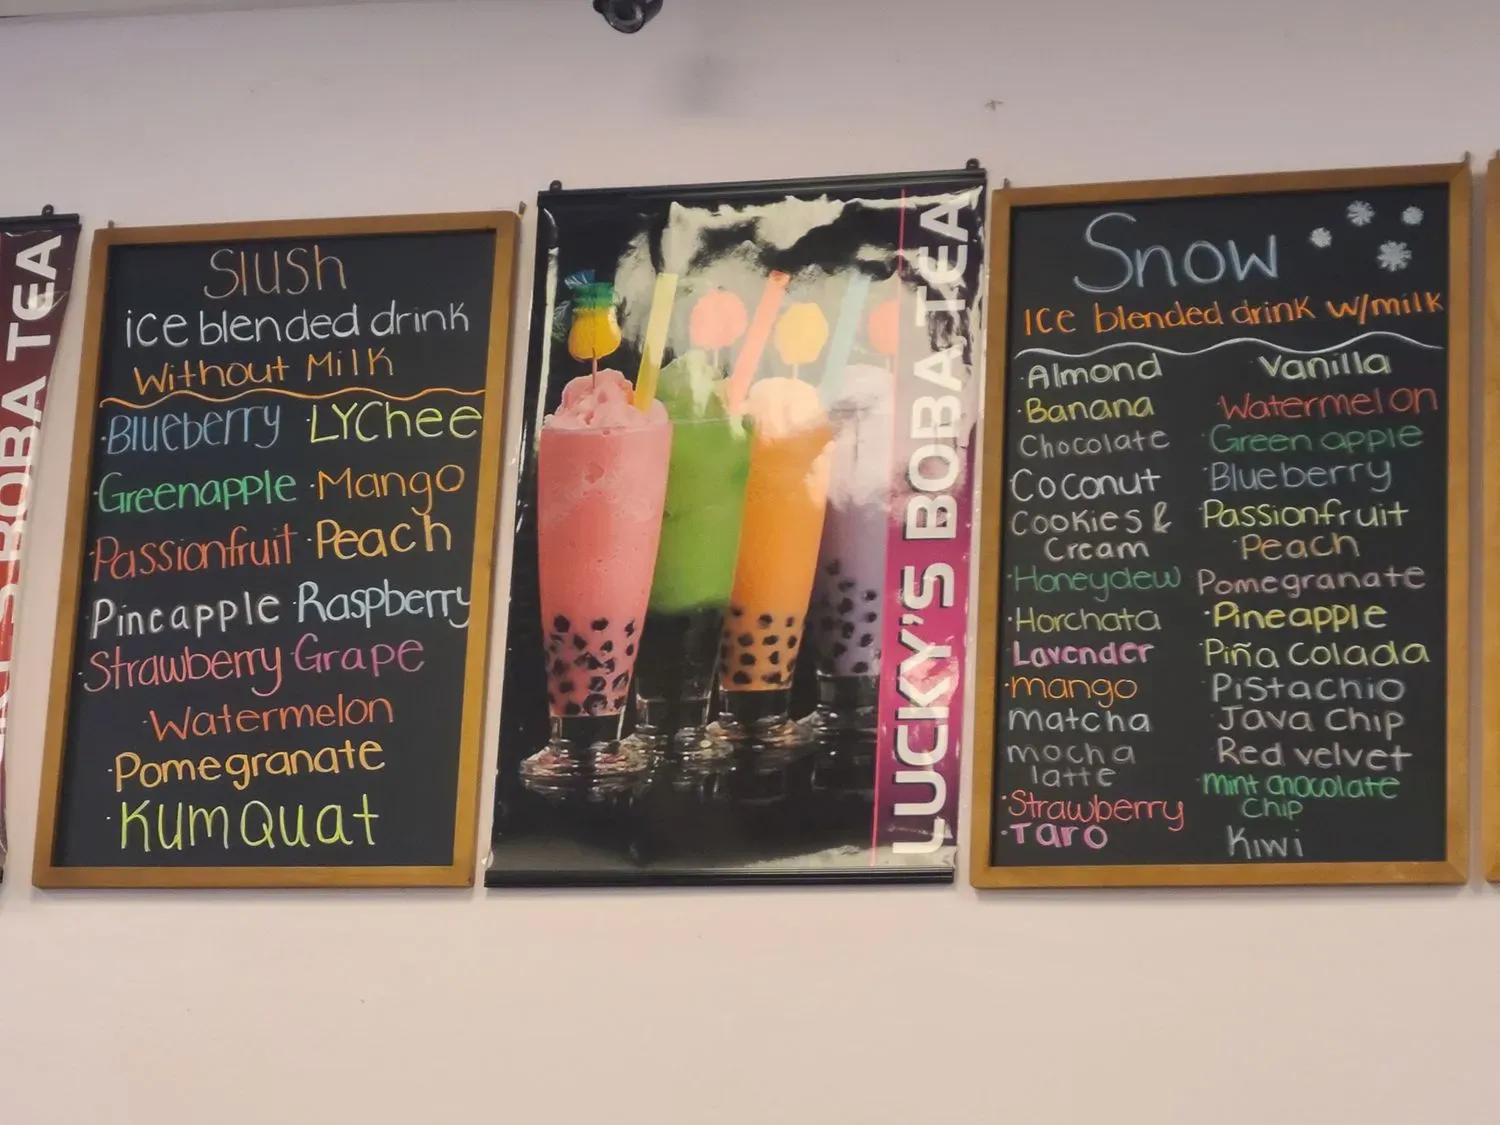 BOBA TEA
Slush
ice blended drink
Without Milk
·Blueberry ·LYChee
·Greenapple ·Mango
·Passionfruit ·Peach
·Pineapple ·Raspberry
·Strawberry ·Grape
·Watermelon
·Pomegranate
·KumQuat
LUCKY'S BOBA TEA
Snow
ICe blended drink w/milk
·Almond
·Banana
·Chocolate
Coconut
Cookies &
Cream
·Honeydew
·Horchata
·Lavender
·mango
matcha
mocha
latte
·Strawberry
·Taro
Vanilla
·Watermelon
·Green apple
·Blueberry
·Passionfruit
·Peach
Pomegranate
·Pineapple
·Piña Colada
·Pistachio
·Java Chip
·Red velvet
·mint chocolate
Chip
·Kiwi